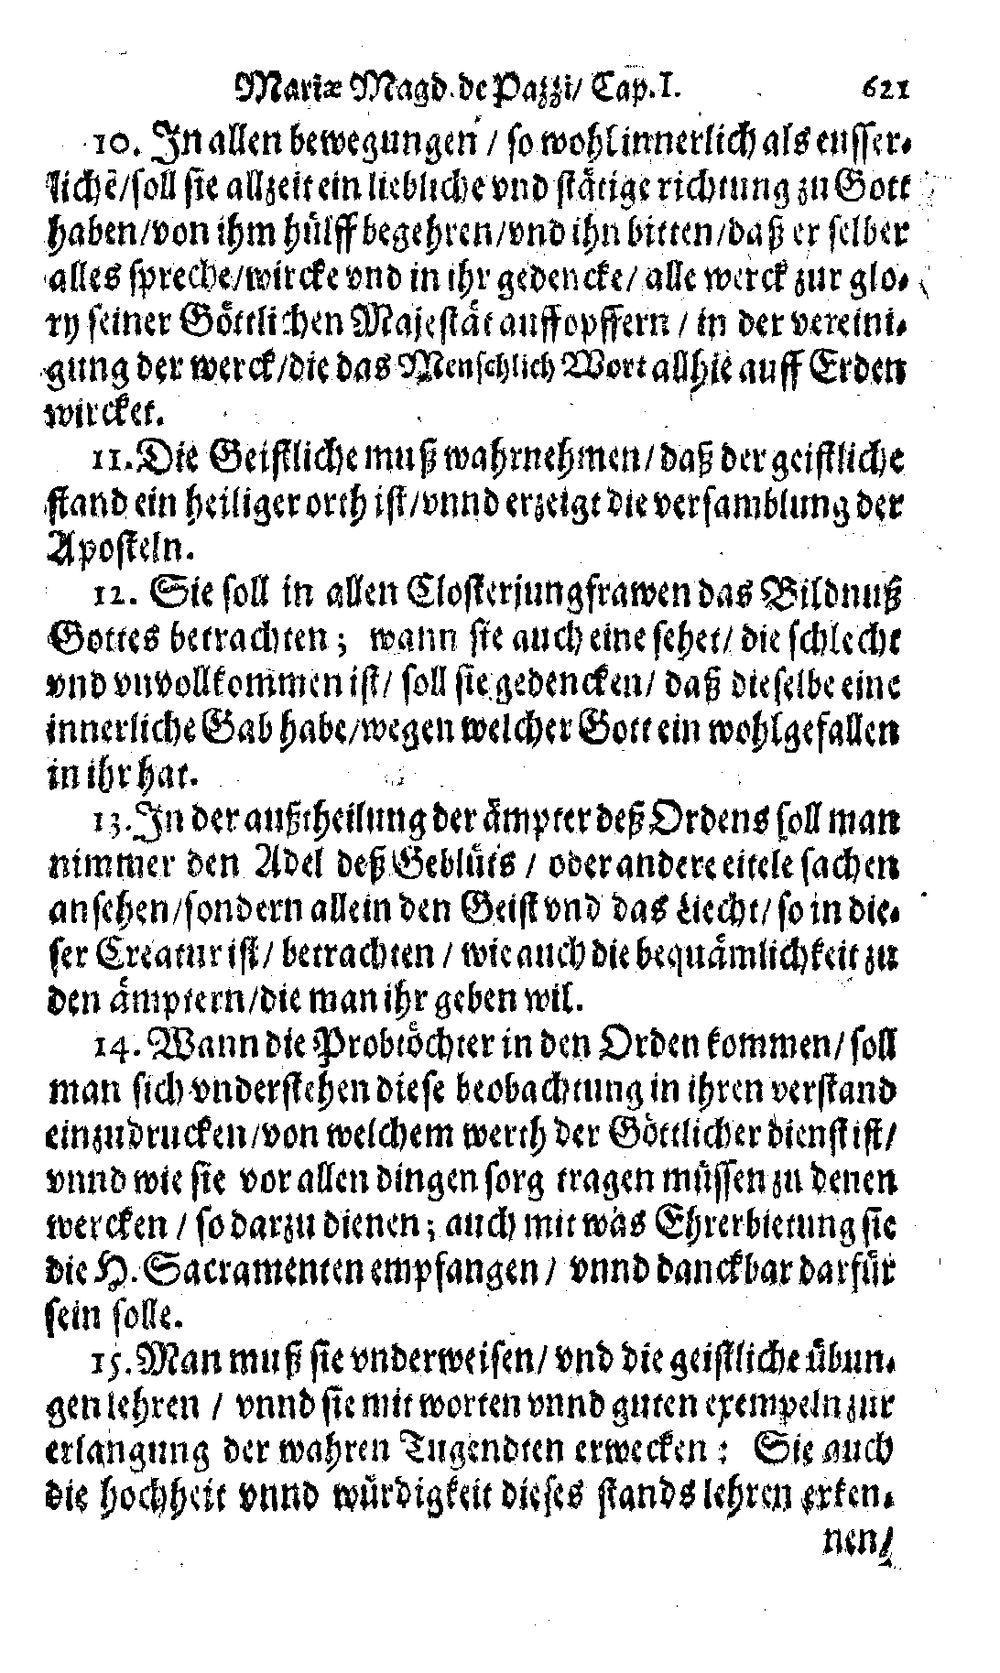 Mariæ Magd. de Pazzi/ Cap. I. 621
10. In allen bewegungen / so wohl innerlich als eusser-
lichẽ/soll sie allzeit ein liebliche vnd stätige richtung zu Gott
haben/von ihm hülff begehren/vnd ihn bitten/daß er selber
alles spreche/wircke vnd in ihr gedencke/ alle werck zur glo-
ry seiner Göttlichen Majestät auffopffern / in der vereini-
gung der werck/die das Menschlich Wort allhie auff Erden
wircket.
11. Die Geistliche muß wahrnehmen/daß der geistliche
stand ein heiliger orth ist/vnnd erzeigt die versamblung der
Aposteln.
12. Sie soll in allen Closterjungfrawen das Bildnuß
Gottes betrachten; wann sie auch eine sehet/ die schlecht
vnd vnvollkommen ist/ soll sie gedencken/ daß dieselbe eine
innerliche Gab habe/wegen welcher Gott ein wohlgefallen
in ihr hat.
13. In der außtheilung der ämpter deß Ordens soll man
nimmer den Adel deß Geblüts / oder andere eitele sachen
ansehen/sondern allein den Geist vnd das Liecht/ so in die-
ser Creatur ist/ betrachten / wie auch die bequämlichkeit zu
den ämptern/die man ihr geben wil.
14. Wann die Probtöchter in den Orden kommen/ soll
man sich vnderstehen diese beobachtung in ihren verstand
einzudrucken/von welchem werth der Göttlicher dienst ist/
vnnd wie sie vor allen dingen sorg tragen müssen zu denen
wercken / so darzu dienen; auch mit was Ehrerbietung sie
die H. Sacramenten empfangen / vnnd danckbar darfür
sein solle.
15. Man muß sie vnderweisen/ vnd die geistliche übun-
gen lehren / vnnd sie mit worten vnnd guten exempeln zur
erlangung der wahren Tugendten erwecken: Sie auch
die hochheit vnnd würdigkeit dieses stands lehren erken-
nen/